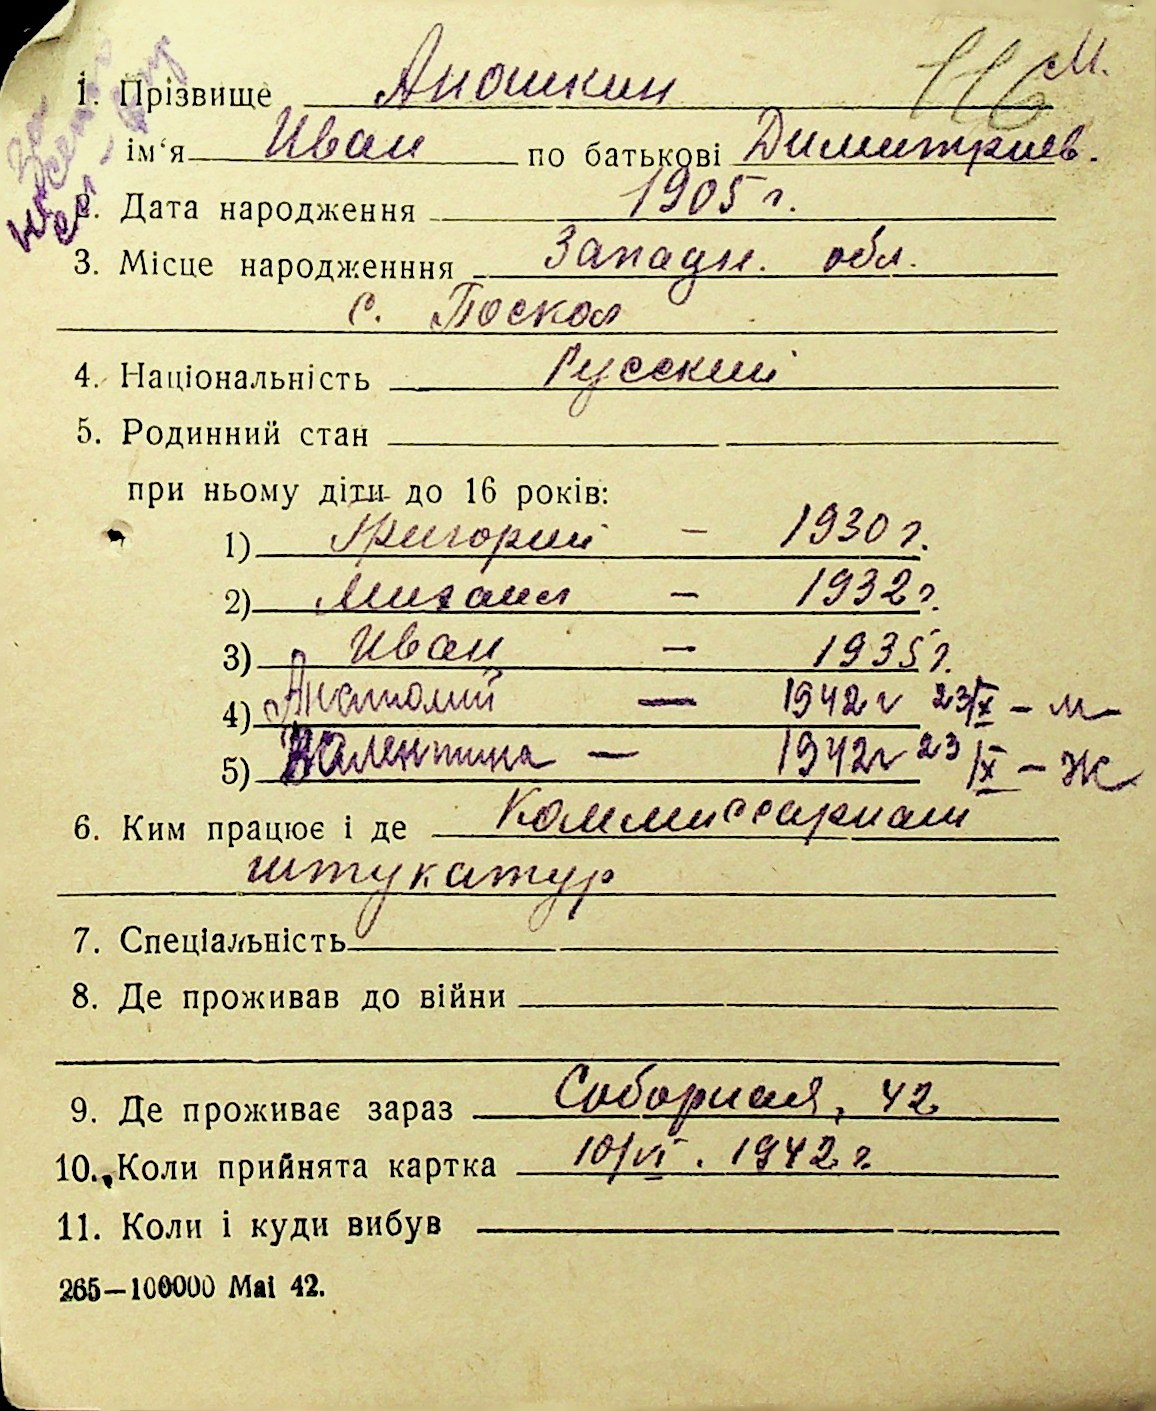 116 М.
1. Прізвище Аношкин
ім'я Иван по батькові Димитриев.
2. Дата народження 1905 г.
3. Місце народженння Западн. обл.
с. Поскол
4. Національність Русский
5. Родинний стан
при ньому діти до 16 років:
1) Григорий – 1930 г.
2) Михаил – 1932 г.
3) Иван – 1935 г.
4) Анатолий — 1942 г 23/IX – м
5) Валентина — 1942 г 23/IX – Ж
6. Ким працює і де Коммиссариат
штукатур
7. Спеціальність
8. Де проживав до війни
9. Де проживає зараз Соборная, 42
10. Коли прийнята картка 10/VI. 1942 г
11. Коли і куди вибув
265—100000 Mai 42.